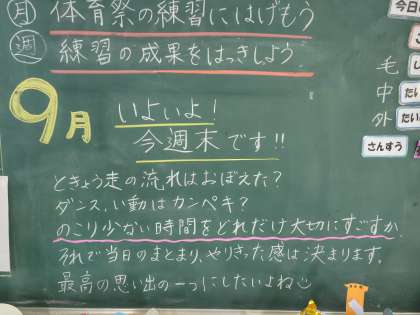 月 体育祭の練習にはげもう
週 練習の成果をはっきしよう
9月
いよいよ!
今週末です!!
ときょう走の流れはおぼえた?
ダンス、い動はカンペキ?
のこり少ない時間をどれだけ大切にすごすか
それで当日のまとまり、やりきった感は決まります。
最高の思い出の一つにしたいよね
今日の
毛
中
外
たい
さんすう